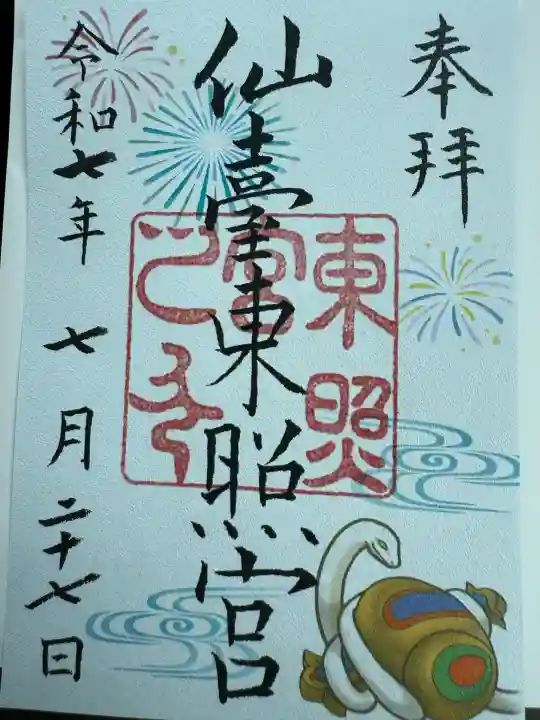 奉拝
仙臺東照宮
東照宮之印
令和七年 七月二十七日